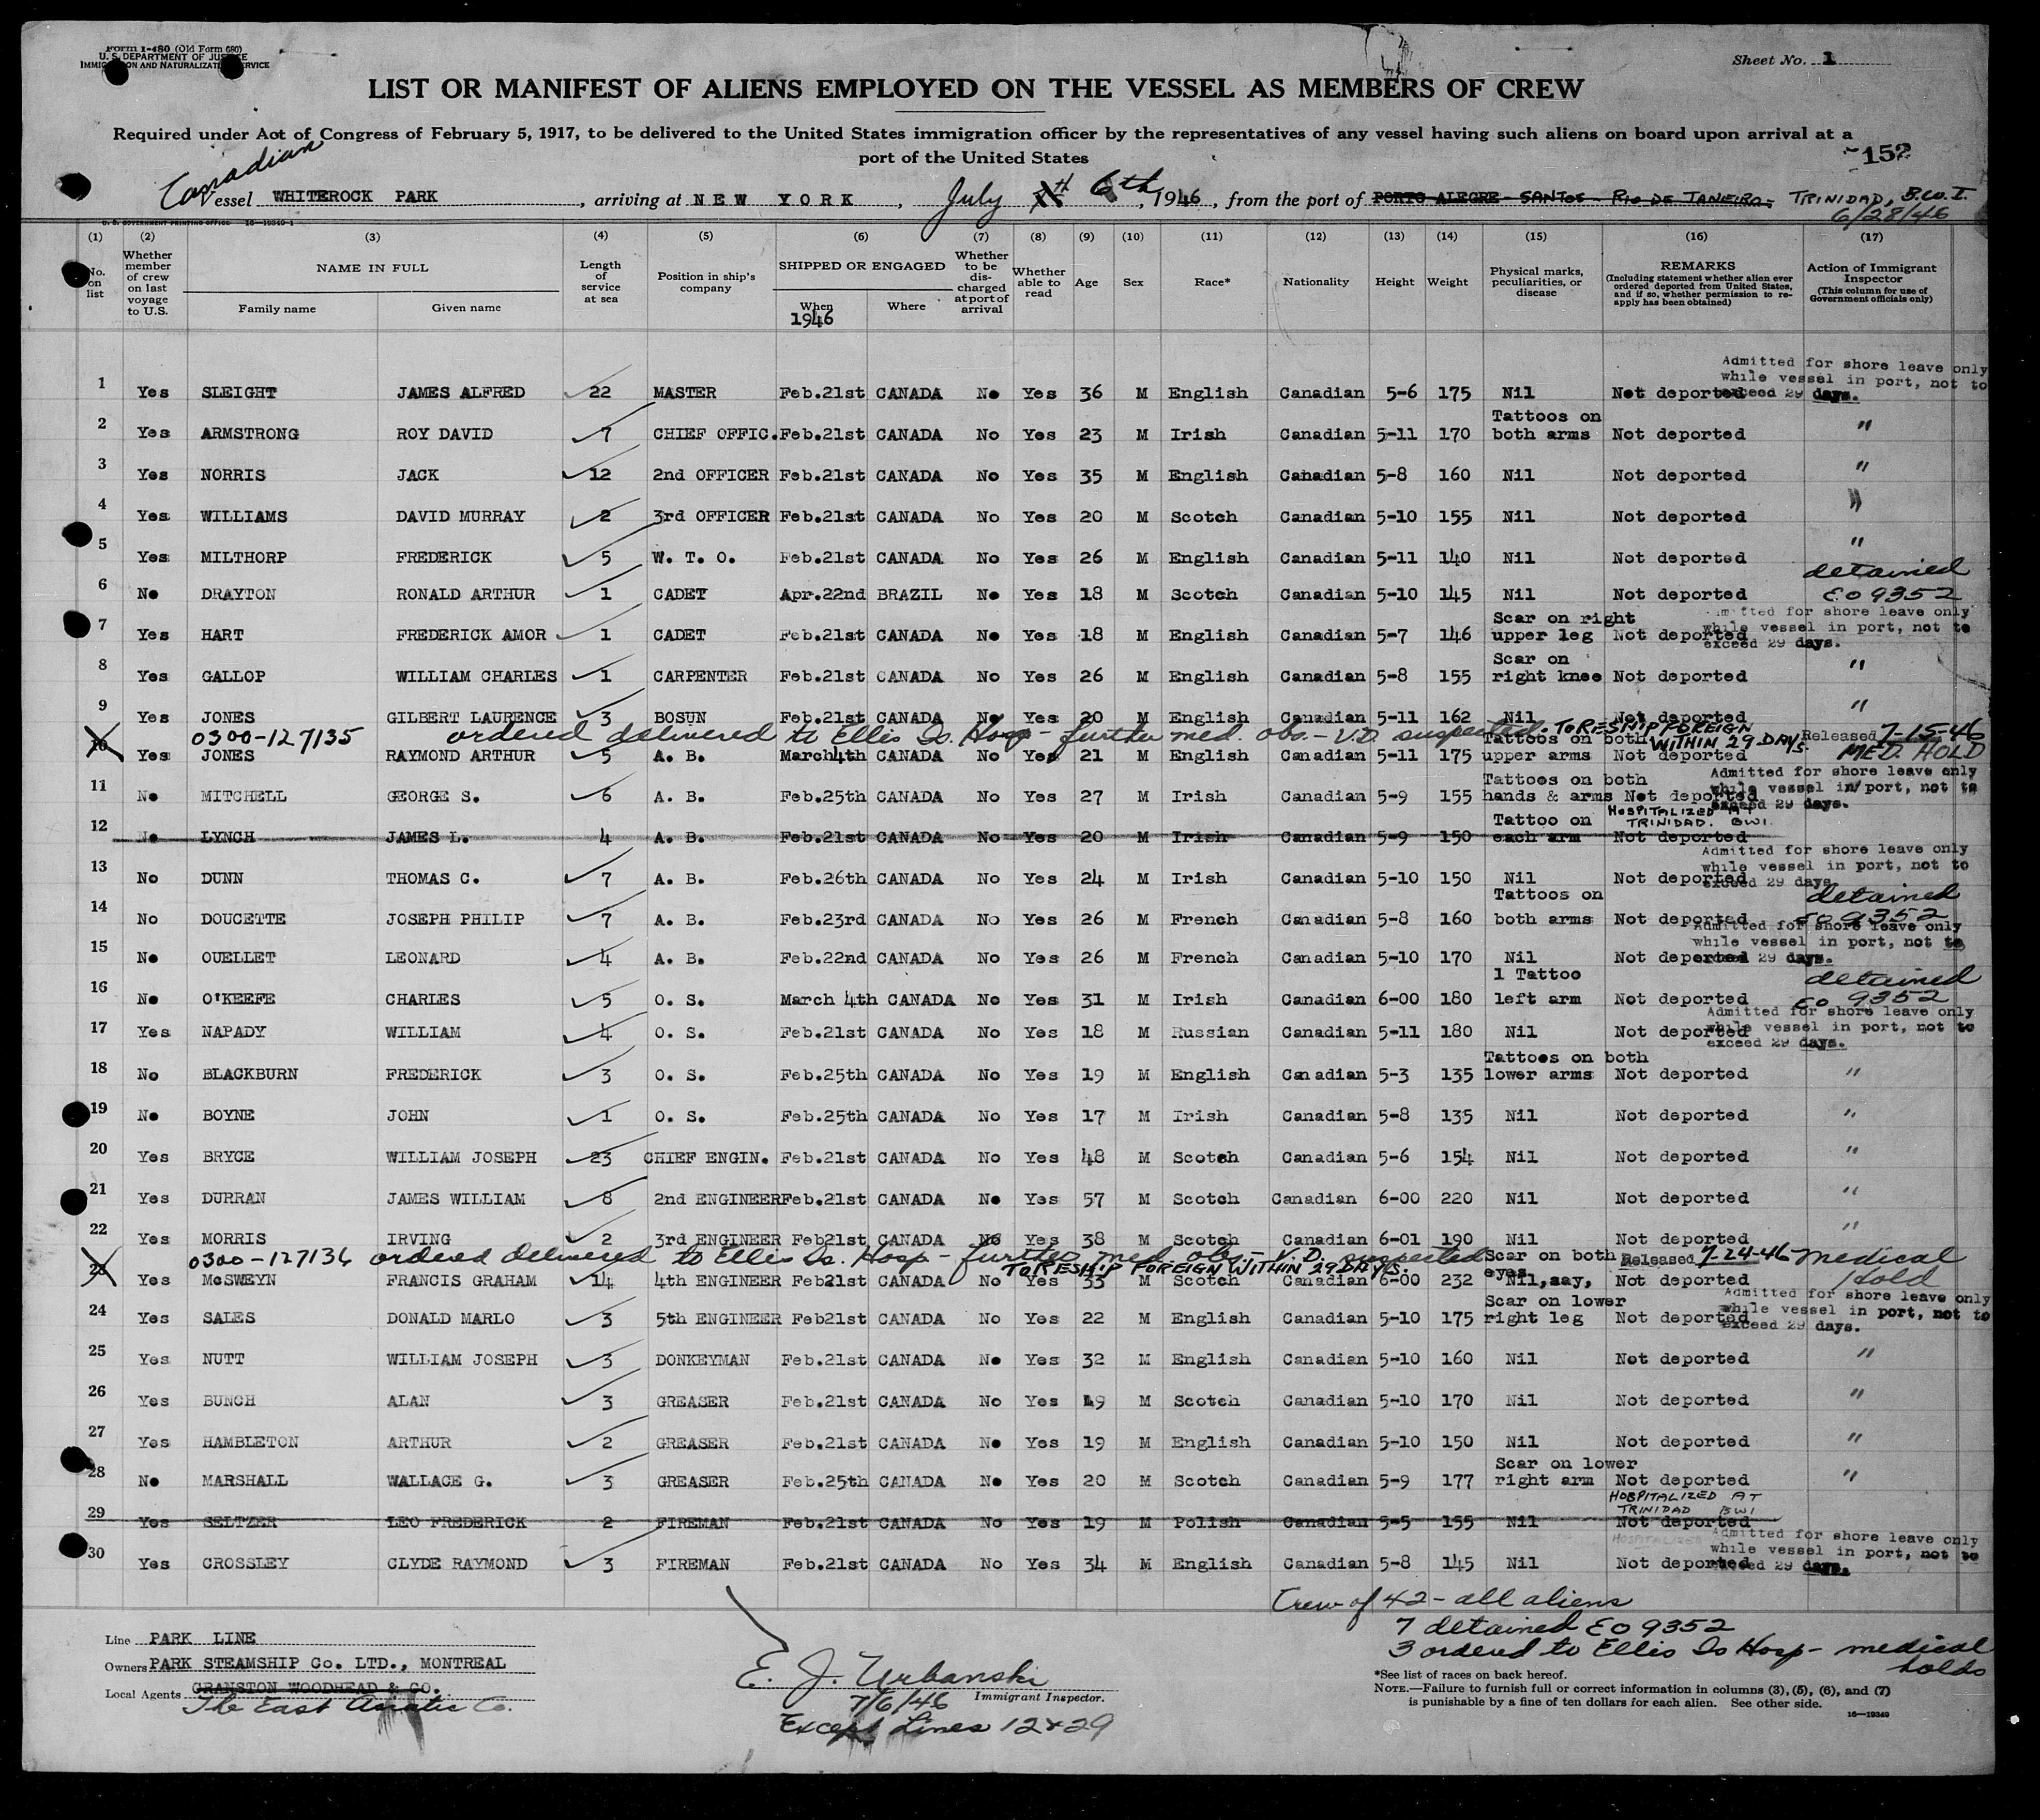 Form I-480 (Old Form 680)
U. S. DEPARTMENT OF JUSTICE
IMMIGRATION AND NATURALIZATION SERVICE
Sheet No. 1
LIST OR MANIFEST OF ALIENS EMPLOYED ON THE VESSEL AS MEMBERS OF CREW
Required under Act of Congress of February 5, 1917, to be delivered to the United States immigration officer by the representatives of any vessel having such aliens on board upon arrival at a
port of the United States
152
Canadian
Vessel WHITEROCK PARK, arriving at NEW YORK, July 6th, 1946, from the port of PORTO ALEGRE - SANTOS - RIO DE JANEIRO - TRINIDAD, B.W.I.
6/28/46
U. S. GOVERNMENT PRINTING OFFICE 16-19349-1
(1) (2) (3) (4) (5) (6) (7) (8) (9) (10) (11) (12) (13) (14) (15) (16) (17)
No. on list
Whether member of crew on last voyage to U.S.
NAME IN FULL
Family name Given name
Length of service at sea
Position in ship's company
SHIPPED OR ENGAGED
When Where
1946
Whether to be discharged at port of arrival
Whether able to read
Age
Sex
Race*
Nationality
Height
Weight
Physical marks, peculiarities, or disease
REMARKS
(Including statement whether alien ever ordered deported from United States, and if so, whether permission to reapply has been obtained)
Action of Immigrant Inspector
(This column for use of Government officials only)
Admitted for shore leave only while vessel in port, not to exceed 29 days.
1 Yes SLEIGHT JAMES ALFRED 22 MASTER Feb.21st CANADA No Yes 36 M English Canadian 5-6 175 Nil Not deported
2 Yes ARMSTRONG ROY DAVID 7 CHIEF OFFIC. Feb.21st CANADA No Yes 23 M Irish Canadian 5-11 170 Tattoos on both arms Not deported "
3 Yes NORRIS JACK 12 2nd OFFICER Feb.21st CANADA No Yes 35 M English Canadian 5-8 160 Nil Not deported "
4 Yes WILLIAMS DAVID MURRAY 2 3rd OFFICER Feb.21st CANADA No Yes 20 M Scotch Canadian 5-10 155 Nil Not deported "
5 Yes MILTHORP FREDERICK 5 W. T. O. Feb.21st CANADA No Yes 26 M English Canadian 5-11 140 Nil Not deported "
6 No DRAYTON RONALD ARTHUR 1 CADET Apr.22nd BRAZIL No Yes 18 M Scotch Canadian 5-10 145 Nil Not deported detained EO 9352
7 Yes HART FREDERICK AMOR 1 CADET Feb.21st CANADA No Yes 18 M English Canadian 5-7 146 Scar on right upper leg Not deported Admitted for shore leave only while vessel in port, not to exceed 29 days.
8 Yes GALLOP WILLIAM CHARLES 1 CARPENTER Feb.21st CANADA No Yes 26 M English Canadian 5-8 155 Scar on right knee Not deported "
9 Yes JONES GILBERT LAURENCE 3 BOSUN Feb.21st CANADA No Yes 20 M English Canadian 5-11 162 Nil Not deported "
0300-127135 ordered delivered to Ellis Is. Hosp - further med. obs. - V.D. suspected. TO RESHIP FOREIGN WITHIN 29 DAYS. Released 7-15-46
10 Yes JONES RAYMOND ARTHUR 5 A. B. March4th CANADA No Yes 21 M English Canadian 5-11 175 Tattoos on both upper arms Not deported MED. HOLD
11 No MITCHELL GEORGE S. 6 A. B. Feb.25th CANADA No Yes 27 M Irish Canadian 5-9 155 Tattoos on both hands & arms Not deported Admitted for shore leave only while vessel in port, not to exceed 29 days.
HOSPITALIZED AT TRINIDAD. BWI.
12 No LYNCH JAMES L. 4 A. B. Feb.21st CANADA No Yes 20 M Irish Canadian 5-9 150 Tattoo on each arm Not deported
13 No DUNN THOMAS C. 7 A. B. Feb.26th CANADA No Yes 24 M Irish Canadian 5-10 150 Nil Not deported Admitted for shore leave only while vessel in port, not to exceed 29 days
14 No DOUCETTE JOSEPH PHILIP 7 A. B. Feb.23rd CANADA No Yes 26 M French Canadian 5-8 160 Tattoos on both arms Not deported detained EO 9352
15 No OUELLET LEONARD 4 A. B. Feb.22nd CANADA No Yes 26 M French Canadian 5-10 170 Nil Not deported Admitted for shore leave only while vessel in port, not to exceed 29 days.
16 No O'KEEFE CHARLES 5 O. S. March 4th CANADA No Yes 31 M Irish Canadian 6-00 180 1 Tattoo left arm Not deported detained EO 9352
17 Yes NAPADY WILLIAM 4 O. S. Feb.21st CANADA No Yes 18 M Russian Canadian 5-11 180 Nil Not deported Admitted for shore leave only while vessel in port, not to exceed 29 days.
18 No BLACKBURN FREDERICK 3 O. S. Feb.25th CANADA No Yes 19 M English Canadian 5-3 135 Tattoos on both lower arms Not deported "
19 No BOYNE JOHN 1 O. S. Feb.25th CANADA No Yes 17 M Irish Canadian 5-8 135 Nil Not deported "
20 Yes BRYCE WILLIAM JOSEPH 23 CHIEF ENGIN. Feb.21st CANADA No Yes 48 M Scotch Canadian 5-6 154 Nil Not deported "
21 Yes DURRAN JAMES WILLIAM 8 2nd ENGINEER Feb.21st CANADA No Yes 57 M Scotch Canadian 6-00 220 Nil Not deported "
22 Yes MORRIS IRVING 2 3rd ENGINEER Feb21st CANADA No Yes 38 M Scotch Canadian 6-01 190 Nil Not deported "
0300-127136 ordered delivered to Ellis Is. Hosp - further med. obs. - V.D. suspected Released 7-24-46 Medical Hold
TO RESHIP FOREIGN WITHIN 29 DAYS.
23 Yes McSWEYN FRANCIS GRAHAM 14 4th ENGINEER Feb21st CANADA No Yes 33 M Scotch Canadian 6-00 232 Scar on both eyes Nil, Not deported
24 Yes SALES DONALD MARLO 3 5th ENGINEER Feb21st CANADA No Yes 22 M English Canadian 5-10 175 Scar on lower right leg Not deported Admitted for shore leave only while vessel in port, not to exceed 29 days.
25 Yes NUTT WILLIAM JOSEPH 3 DONKEYMAN Feb.21st CANADA No Yes 32 M English Canadian 5-10 160 Nil Not deported "
26 Yes BUNCH ALAN 3 GREASER Feb.21st CANADA No Yes 49 M Scotch Canadian 5-10 170 Nil Not deported "
27 Yes HAMBLETON ARTHUR 2 GREASER Feb.21st CANADA No Yes 19 M English Canadian 5-10 150 Nil Not deported "
28 No MARSHALL WALLACE G. 3 GREASER Feb.25th CANADA No Yes 20 M Scotch Canadian 5-9 177 Scar on lower right arm Not deported "
HOSPITALIZED AT TRINIDAD BWI
29 Yes SELTZER LEO FREDERICK 2 FIREMAN Feb.21st CANADA No Yes 19 M Polish Canadian 5-5 155 Nil Not deported
30 Yes CROSSLEY CLYDE RAYMOND 3 FIREMAN Feb.21st CANADA No Yes 34 M English Canadian 5-8 145 Nil Not deported Admitted for shore leave only while vessel in port, not to exceed 29 days.
Crew of 42 - all aliens
7 detained EO 9352
3 ordered to Ellis Is Hosp - medical holds
Line PARK LINE
Owners PARK STEAMSHIP Co. LTD., MONTREAL
Local Agents GRANSTON WOODHEAD & CO.
The East Asiatic Co.
E. J. Urbanski
Immigrant Inspector.
7/6/46
Except Lines 12 & 29
*See list of races on back hereof.
NOTE.—Failure to furnish full or correct information in columns (3), (5), (6), and (7)
is punishable by a fine of ten dollars for each alien. See other side.
16—19349